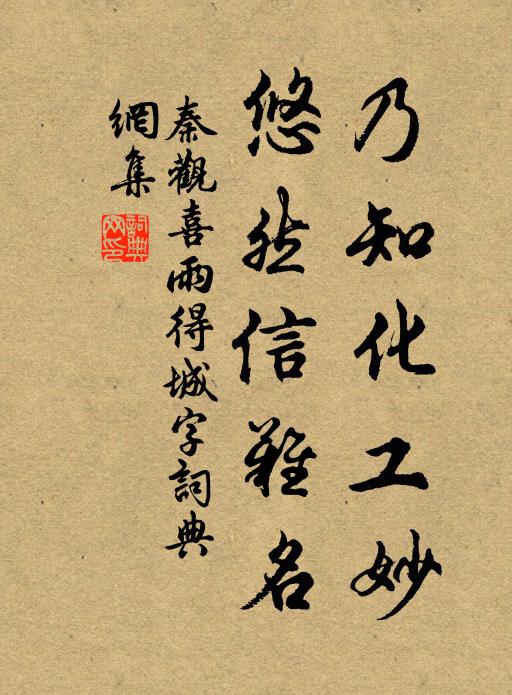 乃知化工妙
悠然信難名
秦觀喜雨得城字詞典
網集
詞典
网印